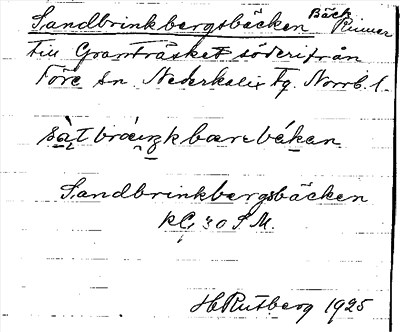 Sandbrinkbergsbäcken Bäck
Rinner
till Granträsket söderifrån
Töre sn. Nederkalix tg. Norrb. l.
Sandbrinkbergsbäcken
30 S.M.
H Rutberg 1925